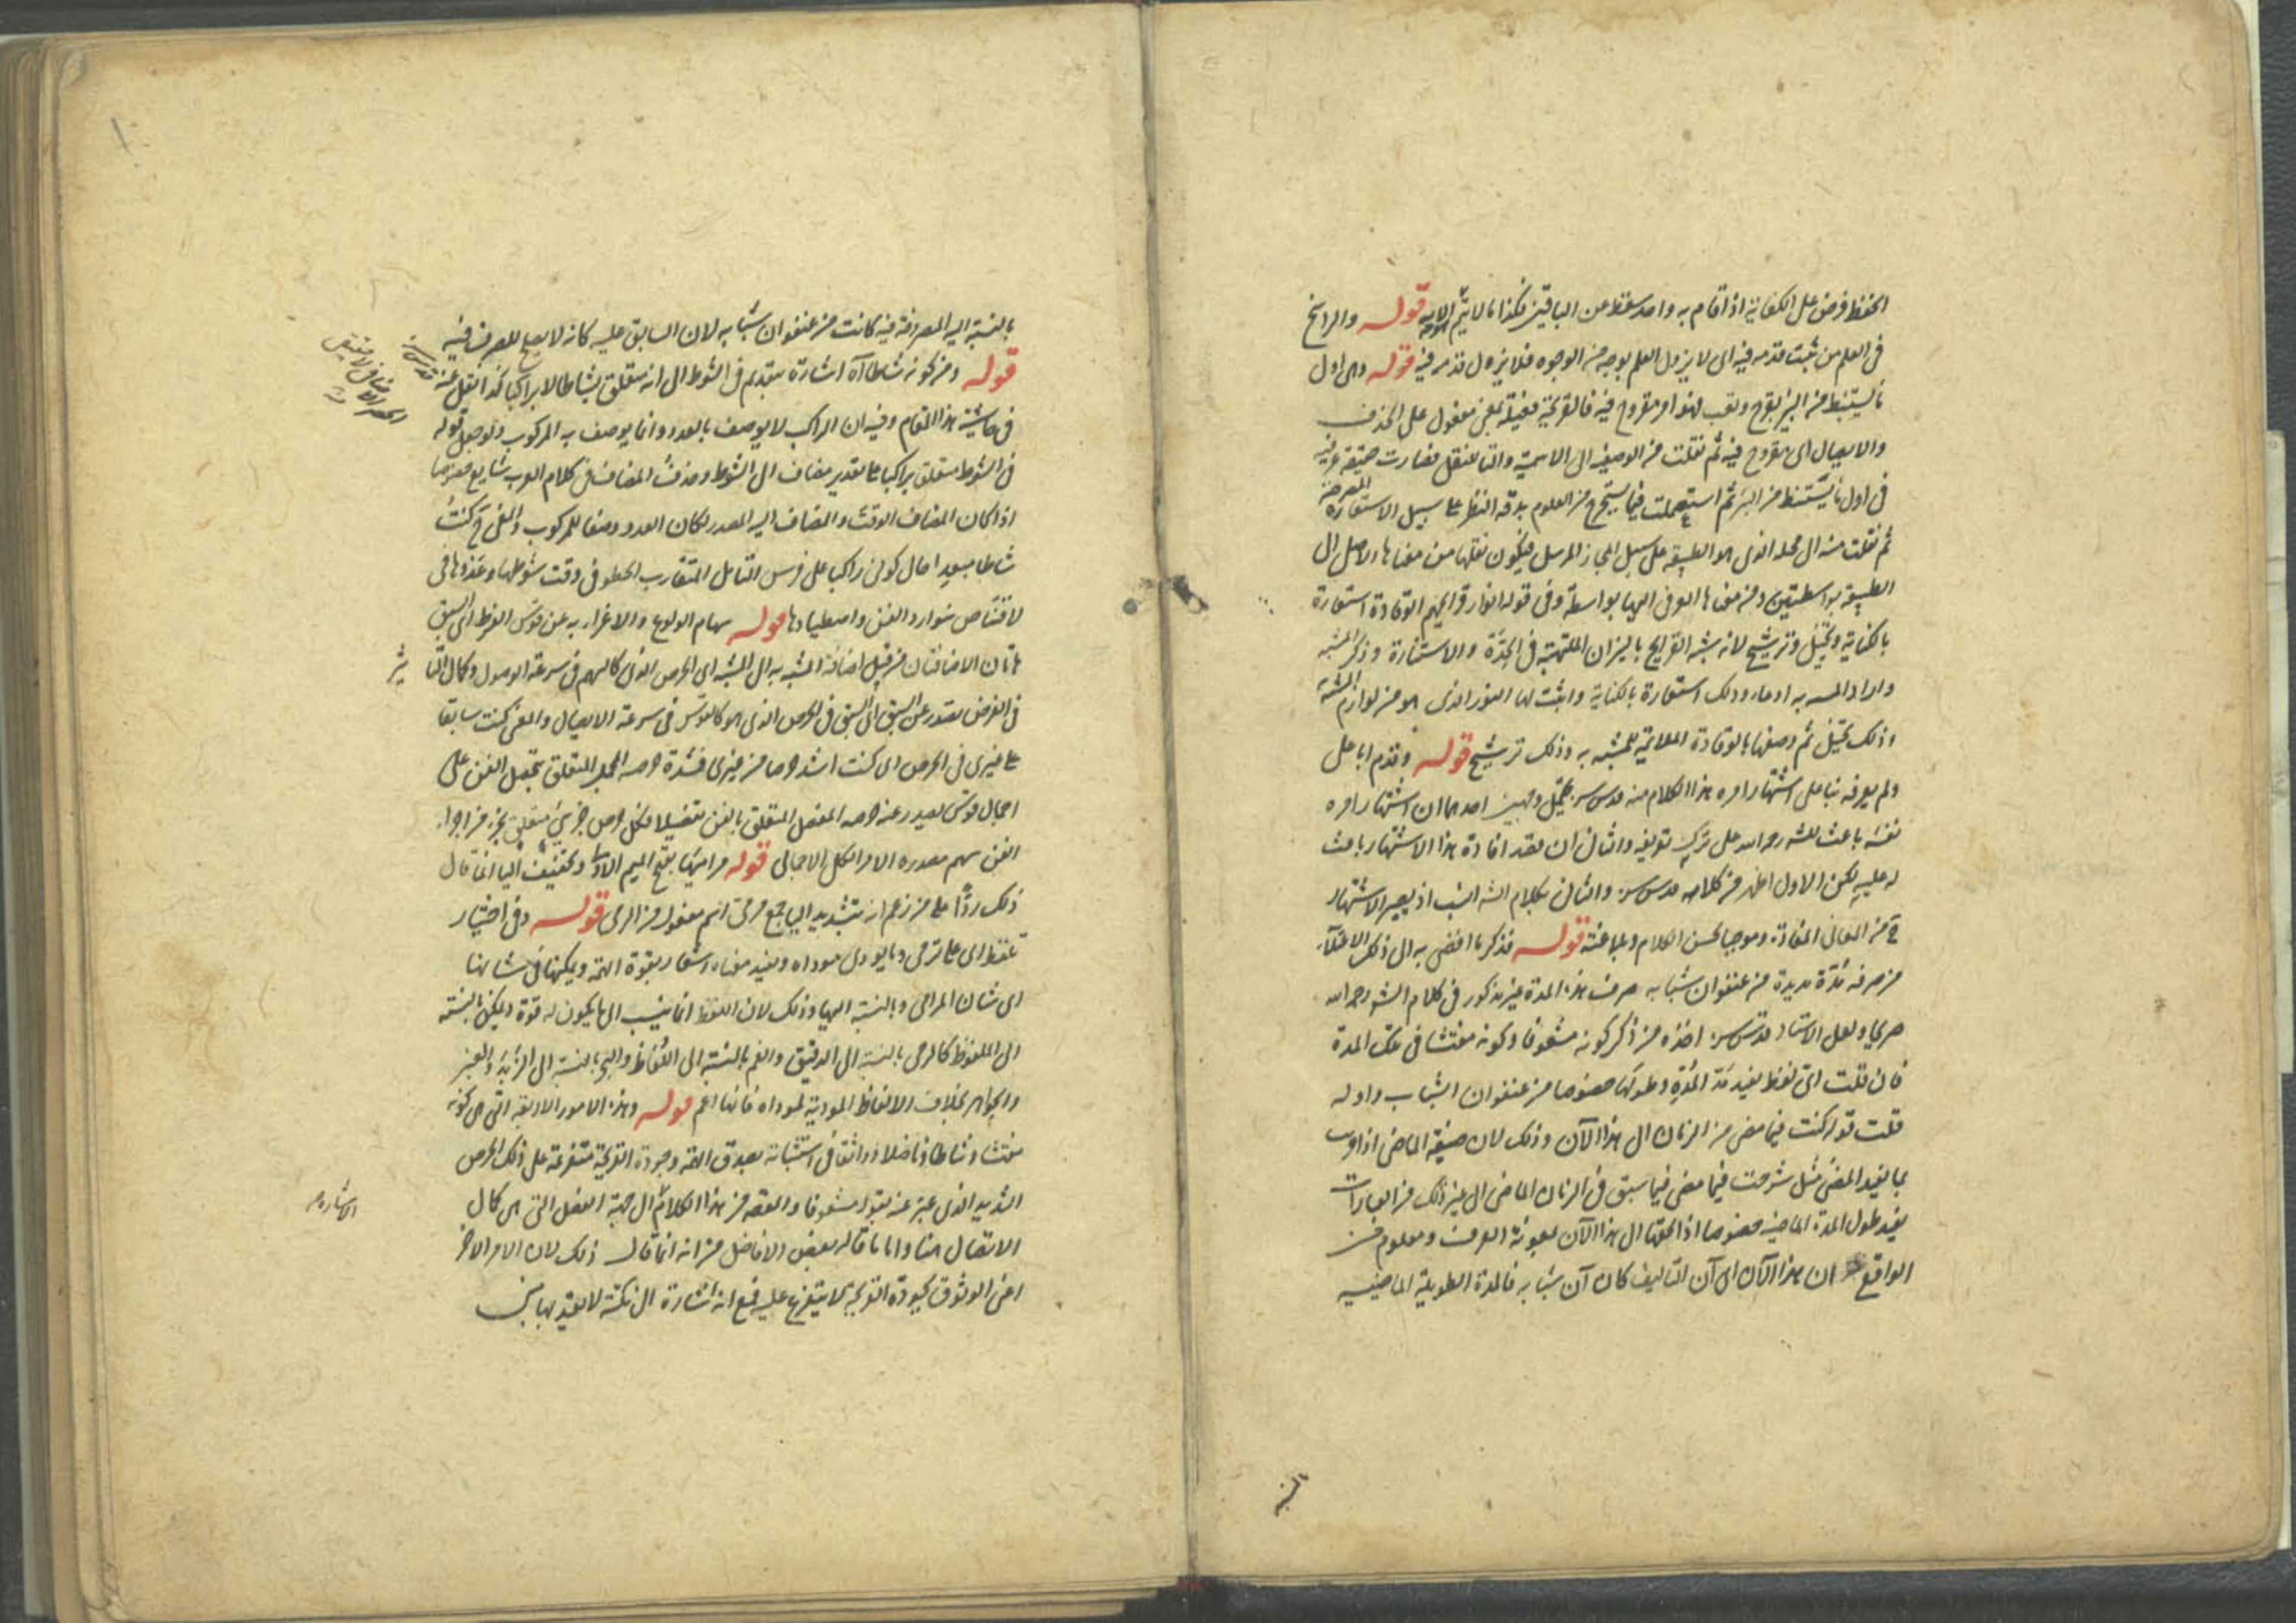 الحفظ فرض على الكفاية اذا قام به واحد سقط عن الباقين فكذا ما لا يتم الا به قوله والراسخ
في العلم من ثبت قدمه فيه اى لا يزول العلم بوجه من الوجوه فلا يزول قدمه فيه قوله وهى اول
ما يستنبط من البئر بقرح وتعب فهو امر مقروح فيه فالقريحة فعيلة بمعنى مفعول على الحذف
والايصال اى مقروح فيه ثم نقلت من الوصفية الى الاسمية والتا للنقل فصارت حقيقة عرفية
في اول ما يستنبط من البئر ثم استعملت فيما يستخرج من العلوم بدقة النظر على سبيل الاستعارة المصرحة
ثم نقلت منه الى محله الذى هو الطبيعة على سبيل المجاز المرسل فيكون نقلها من معناها الاصلى الى
الطبيعة بواسطتين ومن معناها العرفى اليها بواسطة وفى قوله انوار قرايحهم الوقادة استعارة
بالكناية وتخييل وترشيح لانه شبه القرايح بالنيران الملتهبة فى الحدة والاستنارة وذكر المشبه
واراد المشبه به ادعاء وذلك استعارة بالكناية واثبت لها النور الذى هو من لوازم المشبه به
وذلك تخييل ثم وصفها بالوقادة الملائمة للمشبه به وذلك ترشيح قوله وقدم ابا على
ولم يعرفه بناء على اشتهار امره هذا الكلام منه قدس سره يحتمل وجهين احدهما ان اشتهار امره
نفسه باعث للشه رحمه الله على ترك تعريفه والثانى ان بقصد افادة هذا الاشتهار باعث
له عليه لكن الاول اظهر من كلامه قدس سره والثانى بكلام الشه انسب اذ يصير الاشتهار
ح من المعانى المفادة وموجبا لحسن الكلام وبلاغته قوله فذكر ما افضى به الى ذلك الاعتلاء
من صرفه مدة مديدة من عنفوان شبابه صرف هذه المدة غير مذكور فى كلام الشه رحمه الله
صريحا ولعل الاستاد قدس سره اخذه من ذكر كونه مشعوفا وكونه مفتشا فى تلك المدة
فان قلت اى لفظ يفيد مدة المدة وطولها خصوصا من عنفوان الشباب واوله
قلت قوله كنت فيما مضى من الزمان الى هذا الآن وذلك لان صيغة الماضى اذا قرنت
بما يفيد المضى مثل شرحت فيما مضى فيما سبق فى الزمان الماضى الى غير ذلك من العبارات
يفيد طول المدة الماضية خصوصا اذا الحقها الى هذا الآن بمعونة العرف ومعلوم من
الواقع ان هذا الآن اى آن التاليف كان آن شبابه فالمدة الطويلة الماضية
بالنسبة
بالنسبة اليه المصروفة فيه كانت من عنفوان شبابه لان السابق عليه كانه لا يصلح للصرف فيه
قوله ومن كونه نشاطا آه اشارة بتقديم فى الشوط الى انه متعلق بنشاطا لا براكبا كذا نقل عنه
قدس سره
فى حاشية هذا المقام وفيه ان الراكب لا يوصف بالعدو وانما يوصف به المركوب ولو جعل قوله
فى الشوط متعلق براكبا على تقدير مضاف الى الشوط وحذف المضاف فى كلام العرب شايع خصوصا
اذا كان المضاف الوقت والمضاف اليه المصدر لكان العدو وصفا للمركوب والمعنى ح كنت
نشاطا سعيدا حال كونى راكبا على فرس التامل المتقارب الخطو فى وقت شوطها وعدوها فى
لاقتناص شوارد الفن واصطيادها قوله سهام الولوع والاغراء به عن قوس الفرط الى السبق
هاتان الاضافتان من قبيل اضافة المشبه به الى المشبه اى الحرص الذى كالسهم فى سرعة الوصول وكمال التا ثير
فى الغرض بصدر عن السبق اى السبق فى الحرص الذى هو كالقوس فى سرعة الايصال والمعنى كنت سابقا
على غيرى فى الحرص اى كنت اشد حرصا من غيرى فشدة حرصه المجمل المتعلق بتحصيل الفن على
اجمال قوس يصدر عنه حرصه المفصل المتعلق بالفن تفصيلا فكل حرص جزئى متعلق بجزء من اجزاء
الفن سهم مصدره الامر الكلى الاجمالى قوله مراميها بفتح الميم الاولى وتخفيف اليا انما قال
ذلك ردا على من زعم انه بتشديد اليا جمع مرمى اسم مفعول من الرمى قوله وفى اختيار
تلفظ اى على ترمى وما يودى موداه ويفيد معناه اشعار بقوة التمة ويمكنها فى شانها
اى شان المرامى وبالنسبة اليها وذلك لان اللفظ انما ينسب الى ما يكون له قوة ويمكن بالنسبة
الى الملفوظ كالرحى بالنسبة الى الدقيق والفم بالنسبة الى الالفاظ والبحر بالنسبة الى الزبد والعنبر
والجواهر بخلاف الالفاظ المودية لموداه فانها اعم قوله وهذه الامور الاربعة التى هى كونه
مفتشا ونشاطا وناضلا وواثقا فى استثباته بصدق الهمة وجودة القريحة متفرعة على ذلك الحرص
الشديد الذى عبر عنه بقوله مشعوفا والقصد من هذا الكلام الى جهة الفصل التى هى كمال
الاشارة صح
الاتصال هنا واما ما قاله بعض الافاضل من انه انما قال ذلك لان الامر الاخر
اعنى الوثوق بجودة القريحة لا يتفرع عليه فمع انه اشارة الى نكتة لا يعتد بها من